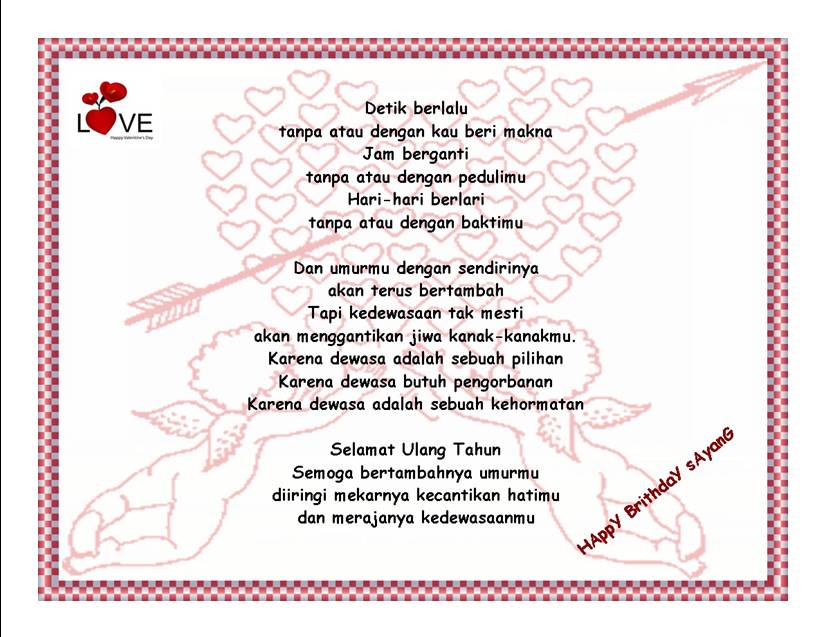 LOVE
Happy Valentine's Day
Detik berlalu
tanpa atau dengan kau beri makna
Jam berganti
tanpa atau dengan pedulimu
Hari-hari berlari
tanpa atau dengan baktimu
Dan umurmu dengan sendirinya
akan terus bertambah
Tapi kedewasaan tak mesti
akan menggantikan jiwa kanak-kanakmu.
Karena dewasa adalah sebuah pilihan
Karena dewasa butuh pengorbanan
Karena dewasa adalah sebuah kehormatan
Selamat Ulang Tahun
Semoga bertambahnya umurmu
diiringi mekarnya kecantikan hatimu
dan merajanya kedewasaanmu
HAppY BrithdaY sAyanG